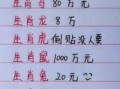 生肖马 80万元
生肖龙 8万
生肖虎 倒贴没人要
生肖鼠 1000万元
生肖兔 20元